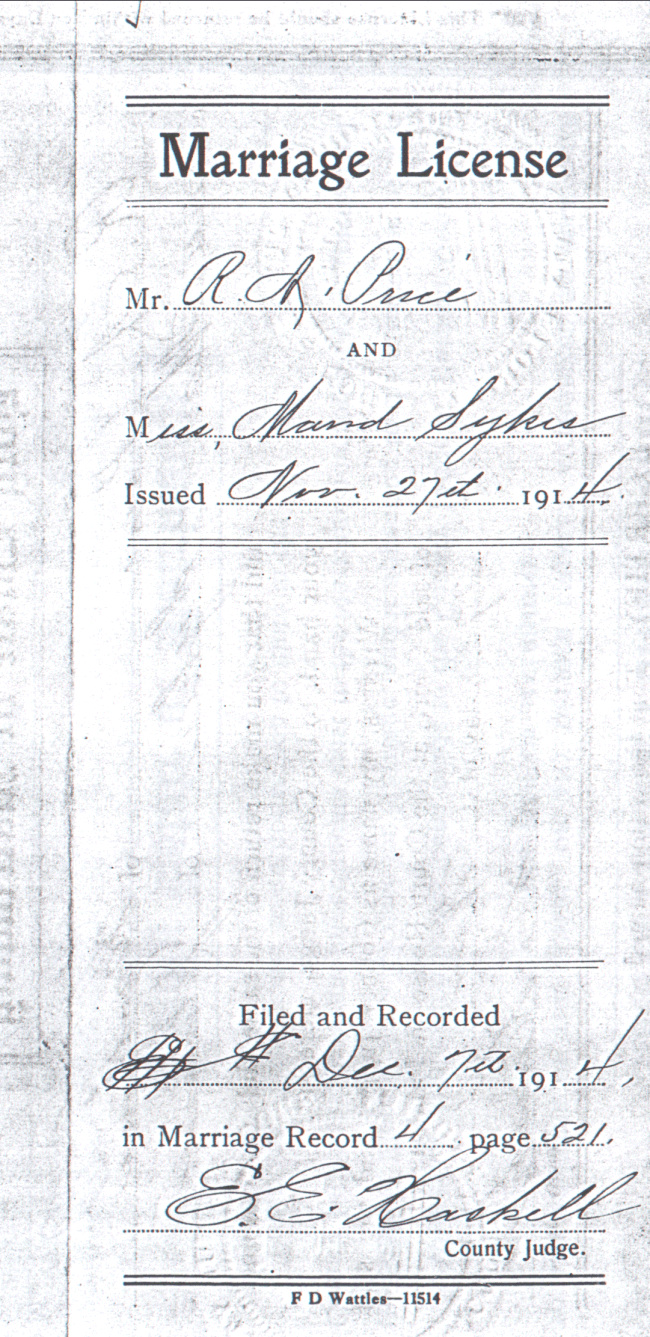 Marriage License
Mr. R. A. Price
AND
Miss, Maud Sykes
Issued Nov. 27th. 1914.
Filed and Recorded
Dec. 7th. 1914,
in Marriage Record 4 page 521.
E. E. Haskell
County Judge.
F D Wattles—11514